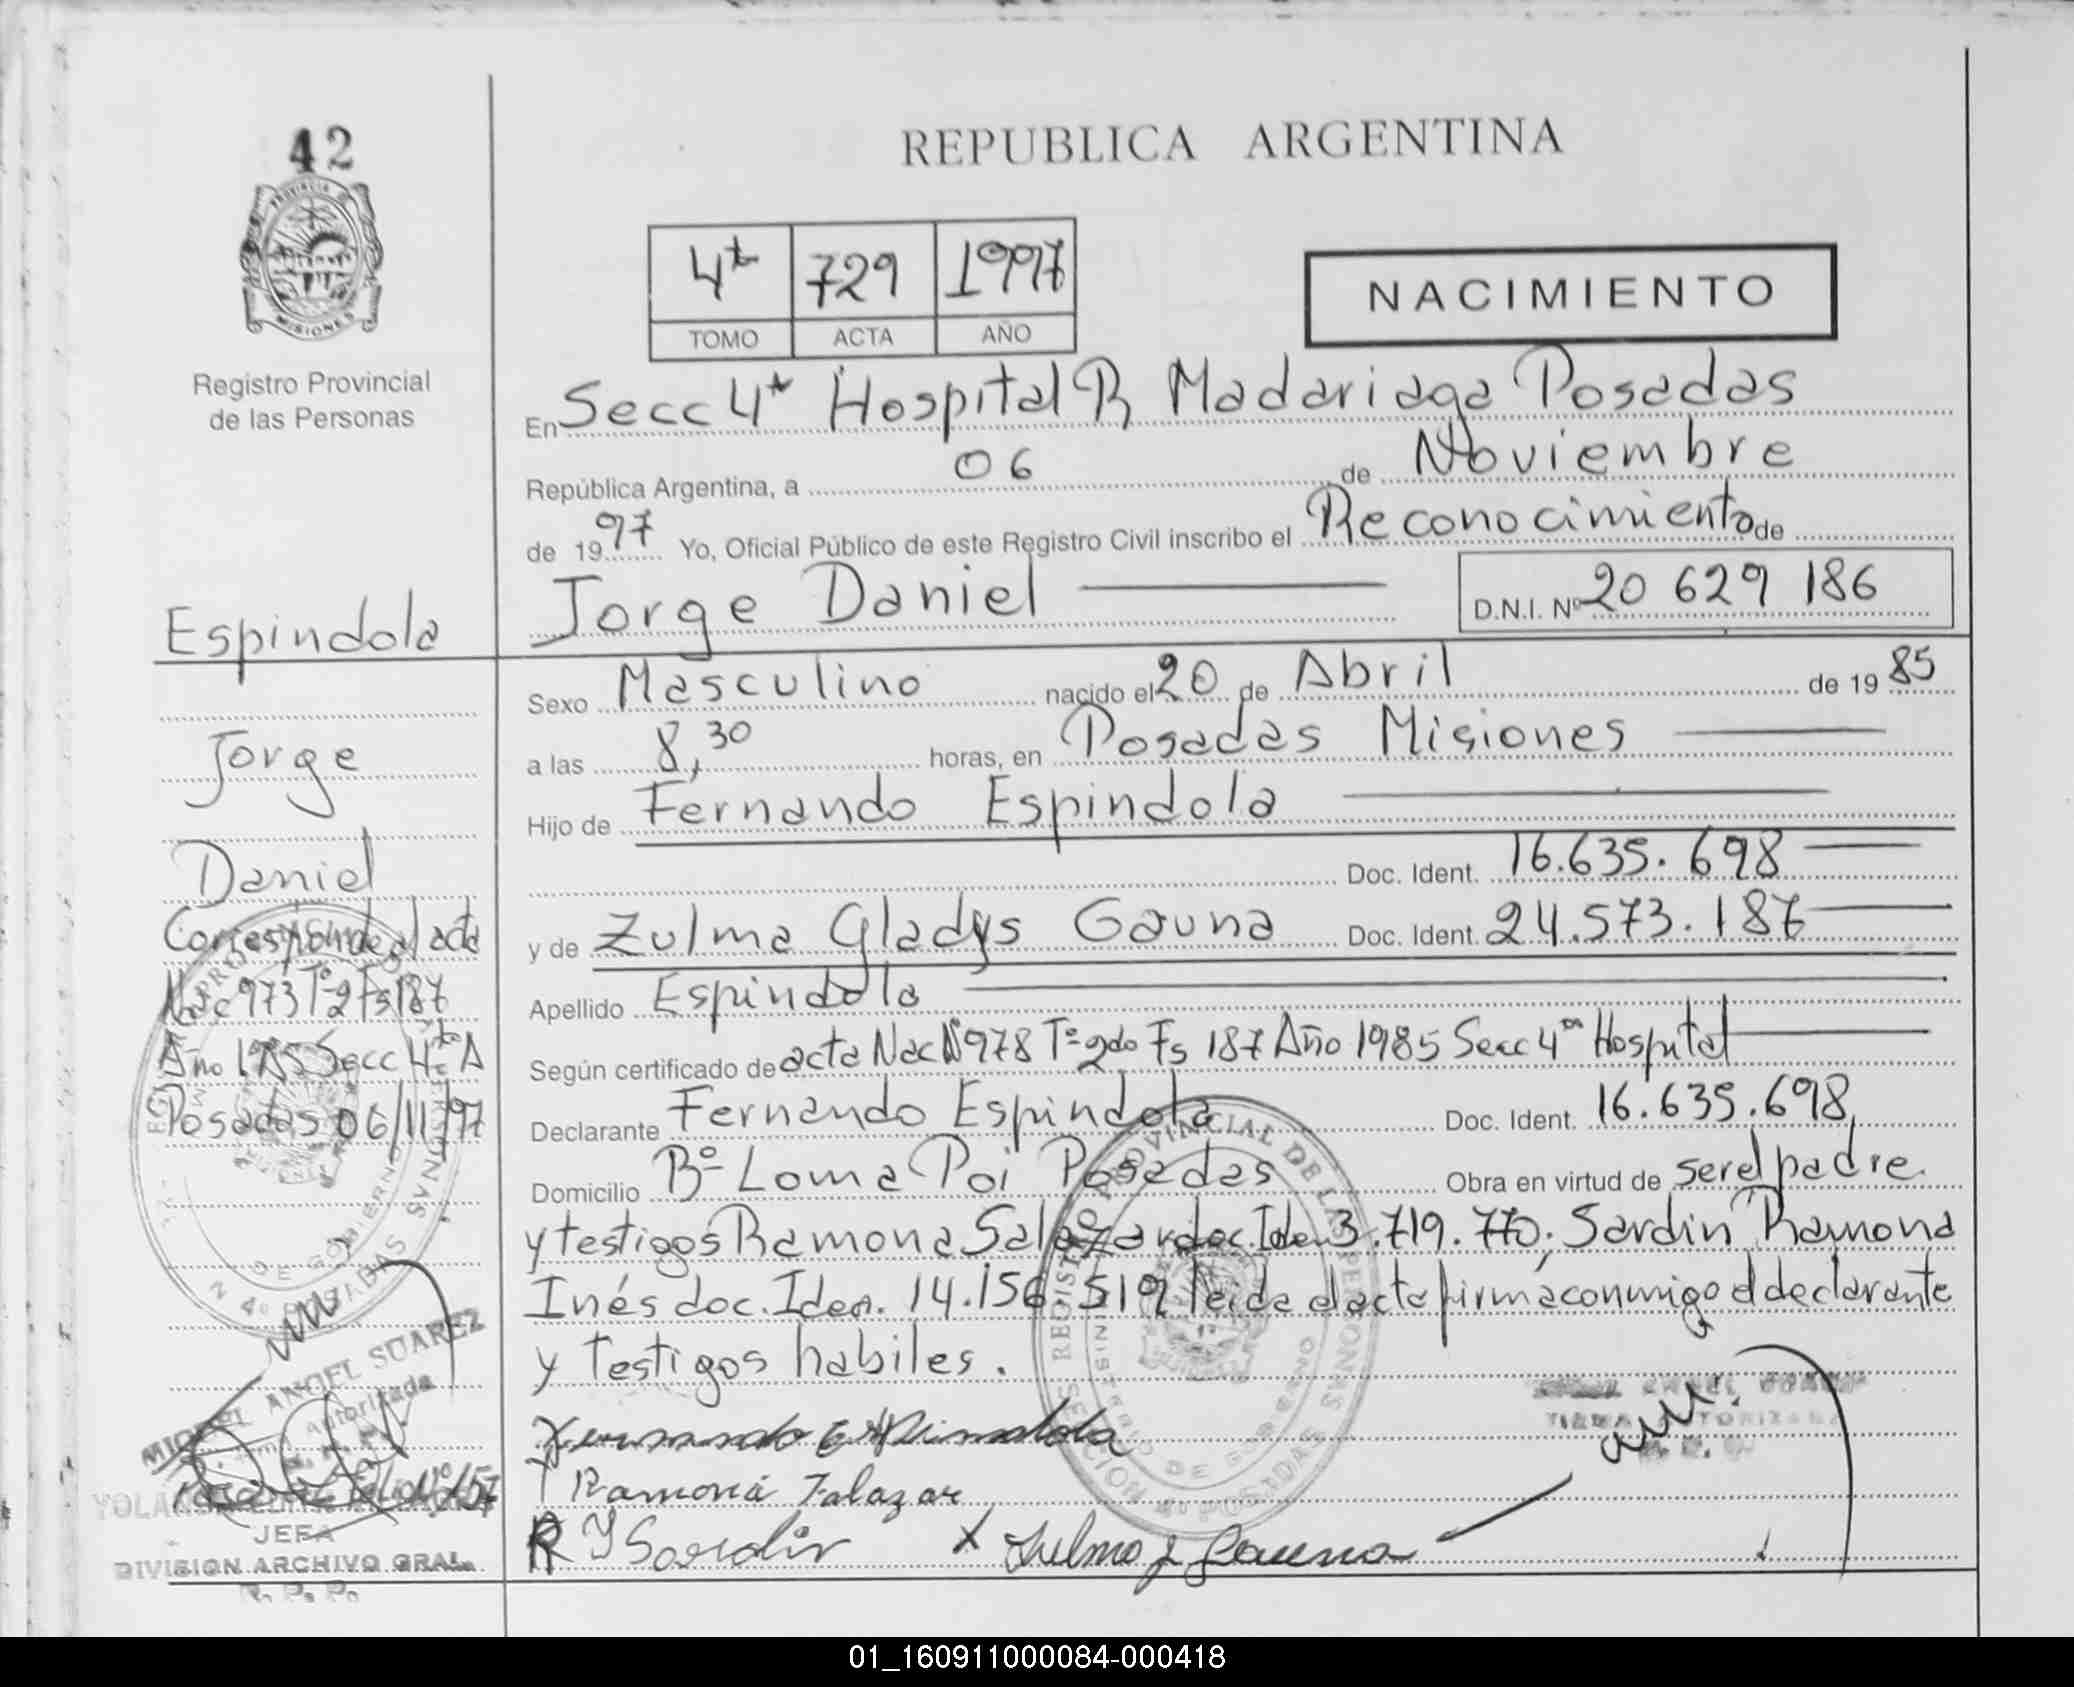 42
PROVINCIA DE
MISIONES
Registro Provincial
de las Personas
REPUBLICA ARGENTINA
4ta 729 1997
TOMO ACTA AÑO
NACIMIENTO
En Secc 4ta Hospital R Madariaga Posadas
República Argentina, a 06 de Noviembre
de 1997 Yo, Oficial Público de este Registro Civil inscribo el Reconocimiento de
Jorge Daniel D.N.I. Nº 20 629 186
Sexo Masculino nacido el 20 de Abril de 1985
a las 8,30 horas, en Posadas Misiones
Hijo de Fernando Espindola
Doc. Ident. 16.635.698
y de Zulma Gladys Gauna Doc. Ident. 24.573.187
Apellido Espindola
Según certificado de acta Nac Nº 978 Tº 2do Fs 187 Año 1985 Secc 4ta Hospital
Declarante Fernando Espindola Doc. Ident. 16.635.698
Domicilio Bº Loma Poi Posadas Obra en virtud de ser el padre
y testigos Ramona Salazar doc. Iden 3.719.770. Sardin Ramona
Inés doc. Iden. 14.156 519 leida el acta firma conmigo el declarante
y Testigos habiles.
Fernando Espindola
Ramona Salazar
R I Sardin X Zulma g Gauna
REGISTRO PROVINCIAL DE LAS PERSONAS
MINISTERIO DE GOBIERNO
4º POSADAS
Espindola
Jorge
Daniel
Corresponde al acta
Nac 973 Tº 2 Fs 187
Año 1985 Secc 4ta A
Posadas 06/11/97
MIGUEL ANGEL SUAREZ
autorizada
YOLANDA
JEFA
DIVISION ARCHIVO GRAL.
R. P. P.
01_160911000084-000418